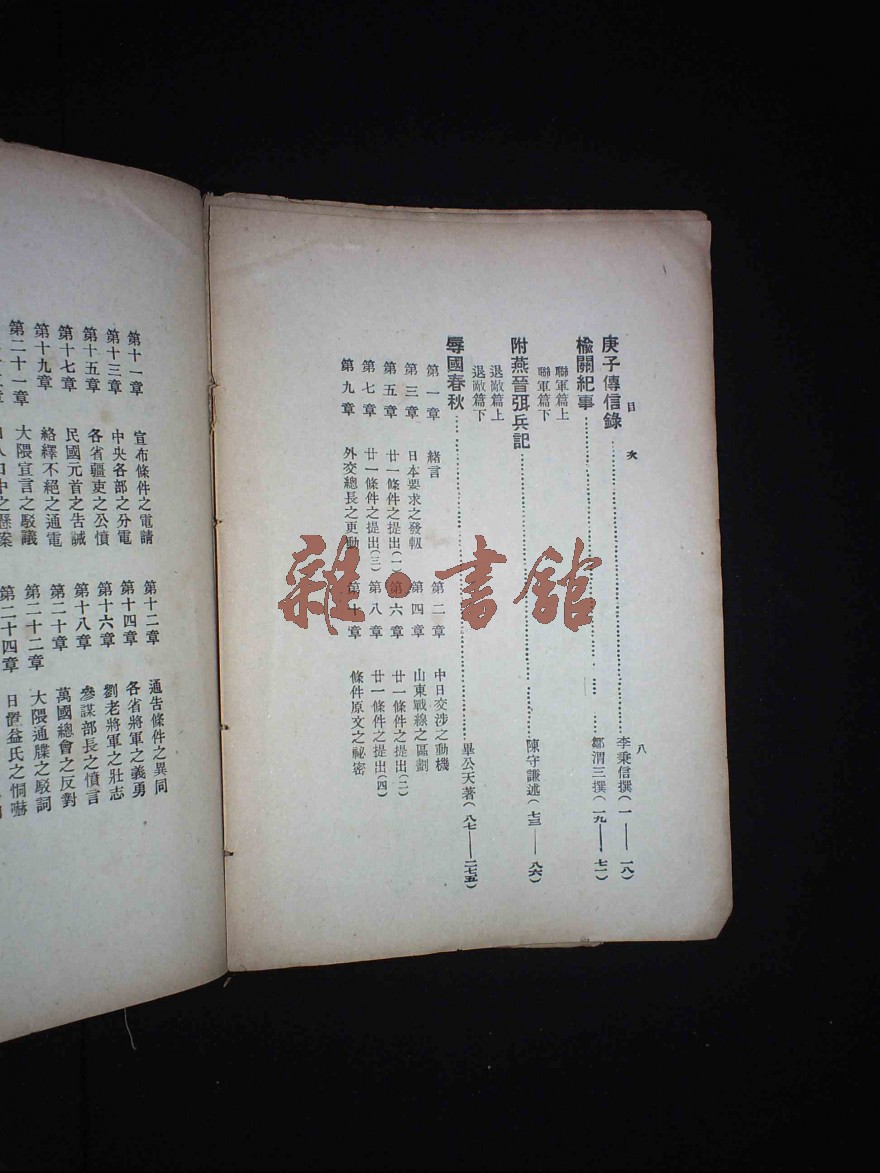 目次
八
庚子傳信錄……李秉信撰(一——一八)
楡關紀事……鄒渭三撰(一九——七一)
聯軍篇上
聯軍篇下
附燕晉弭兵記……陳守謙述(七三——八六)
退敵篇上
退敵篇下
辱國春秋……畢公天著(八七——二七五)
第一章 緒言 第二章 中日交涉之動機
第三章 日本要求之發軔 第四章 山東戰線之區劃
第五章 廿一條件之提出(一) 第六章 廿一條件之提出(二)
第七章 廿一條件之提出(三) 第八章 廿一條件之提出(四)
第九章 外交總長之更動 第十章 條件原文之祕密
第十一章 宣布條件之電請 第十二章 通告條件之異同
第十三章 中央各部之分電 第十四章 各省將軍之義勇
第十五章 各省疆吏之公憤 第十六章 劉老將軍之壯志
第十七章 民國元首之告誡 第十八章 參謀部長之憤言
第十九章 絡繹不絕之通電 第二十章 萬國總會之反對
第二十一章 大隈宣言之駁議 第二十二章 大隈通牒之駁詞
第二十四章 日置益氏之恫嚇
雜·書館